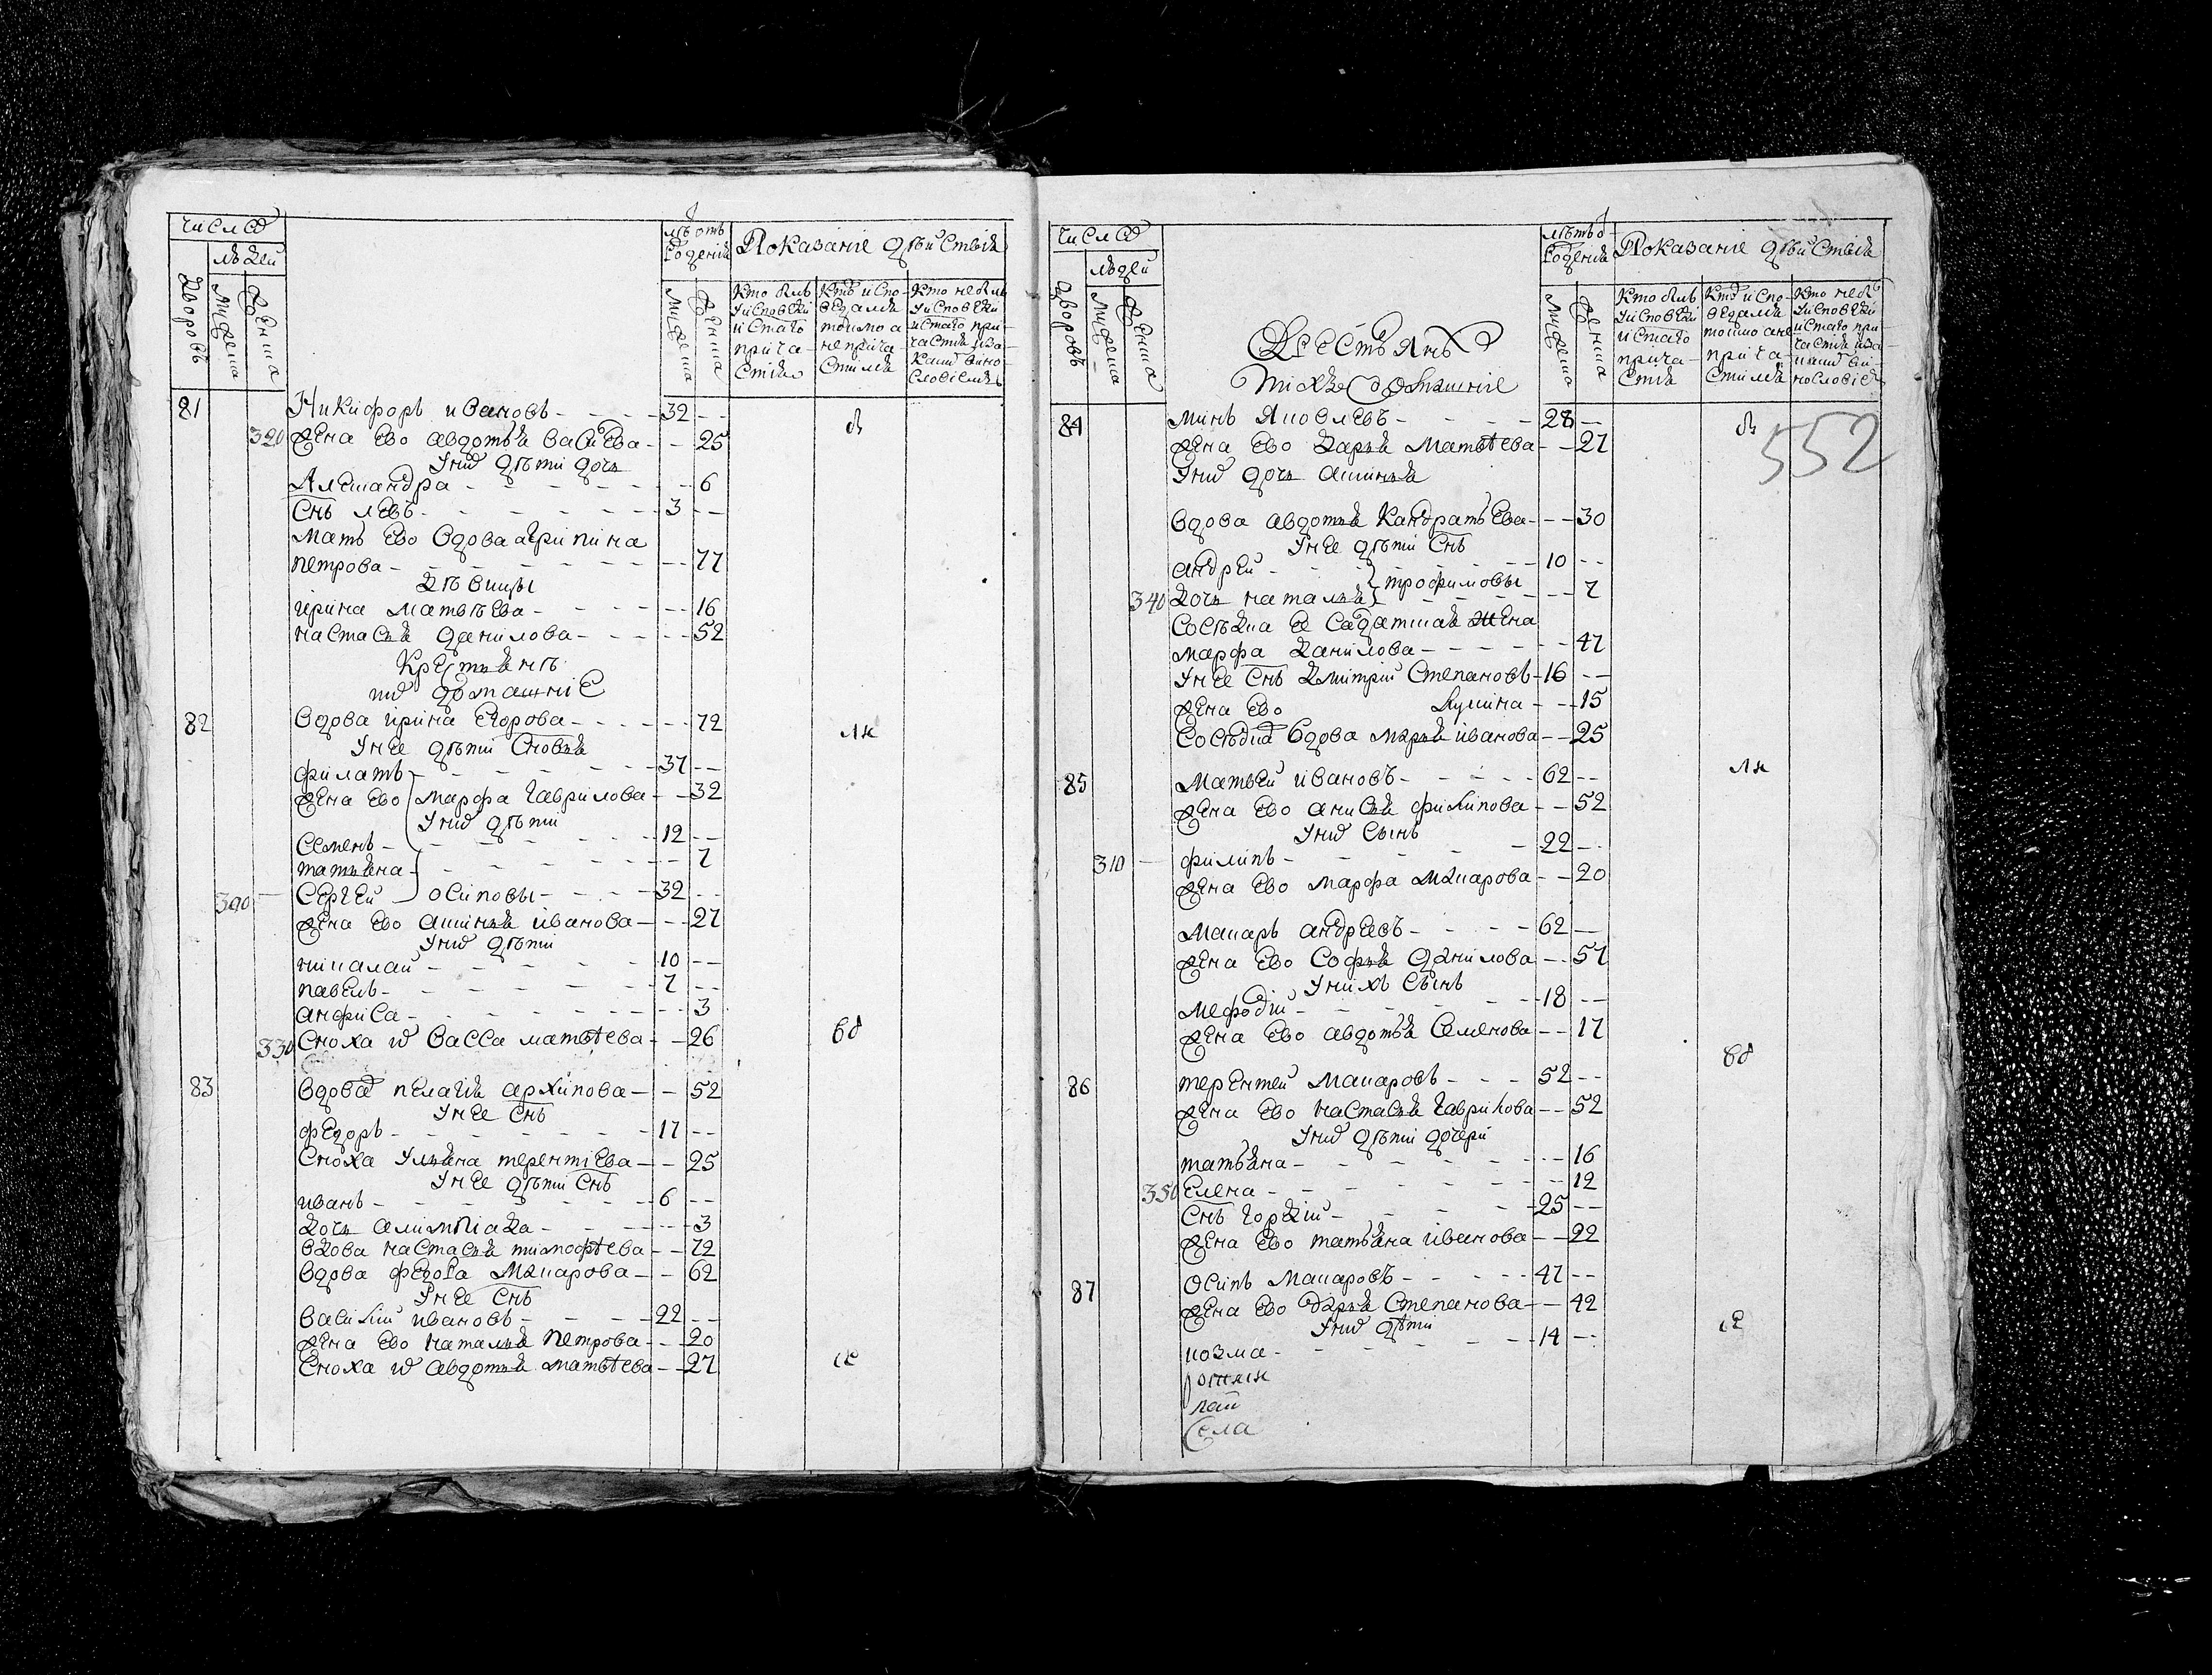 число
людей
дворовъ
мужеска
женска
лѣтъ отъ
рожденія
мужеска
женска
Показаніе дѣйствія
Кто былъ
у исповѣди
и святаго
прича-
стія
Кто испо-
ведался
токмо а
не прича-
стился
Кто не былъ
у исповѣди
и святаго при-
частія и за
каким вино-
словіемъ
81 Никифоръ ивановъ - - - 32 --
320 жена Ево авдотья васиева - - 25
У них дѣти дочь
Алесандра - - - - 6
Снъ левъ - - - - 3 --
мать Ево вдова агрипина
петрова - - - - 77
Дѣвицы
ирина матвѣева - - - 16
настасья данилова - - - 52
Крестьянѣ
их домашніе
82 вдова ирина Егорова - - - 72
У нее дѣти Сновья
филатъ - - - - 37 --
жена Ево марфа гаврилова - - 32
У них дѣти
Семенъ - - - - 12 --
татьяна - - - - 7
390 Сергей осиповы - - - 32 --
жена Ево аксинья иванова - - 27
У них дѣти
николай - - - - 10 --
павелъ - - - - 7 --
анфиса - - - - 3
330 Сноха их васса матвѣева - - 26
83 вдова пелагия архипова - - 52
У нее Снъ
федоръ - - - - 17 --
Сноха Ульяна терентиева - - 25
У нее дѣти Снъ
иванъ - - - - 6 --
дочь алимпиада - - - 3
вдова настасья тимофѣева - - 72
вдова федора макарова - - 62
У нее Снъ
василий ивановъ - - - 22 --
жена Ево наталья петрова - - 20
Сноха их авдотья матвѣева - - 27
число
людей
дворовъ
мужеска
женска
Крестьянъ
тѣхже домашніе
лѣтъ о
рожденія
мужеска
женска
Показаніе дѣйствія
Кто былъ
у исповѣди
и святаго
прича-
стія
Кто испо-
ведался
токмо а не
прича-
стился
Кто не был
у исповѣди
и святаго при-
частія и за
каким ви-
нословіем
552
84 минъ Яковлевъ - - - 28 --
жена Ево дарья матвѣева - - 27
У них дочь аксинья
вдова авдотья кандратьева - - 30
У нее дѣти Снъ
андрей - - - 10 --
трофимовы
340 дочь наталья - - - 7
Сосѣдка Ее Салдатская жена
марфа данилова - - - 47
У нее Снъ дмитрий Степановъ - 16 --
жена Ево Акулина - - 15
Сосѣдка вдова марья иванова - - 25
85 матвей ивановъ - - - 62 --
жена Ево анисья филипова - - 52
У них Сынъ
310 филипъ - - - - 22 --
жена Ево марфа макарова - - 20
макаръ андреевъ - - - 62 --
жена Ево Софья данилова - - 57
У них Сынъ
мефодій - - - - 18 --
жена Ево авдотья Семенова - - 17
86 терентей макаровъ - - - 52 --
жена Ево настасья гаврилова - - 52
У них дѣти дочери
татьяна - - - - 16
350 Елена - - - - 12
Снъ гордѣй - - - - 25 --
жена Ево татьяна иванова - - 22
87 осипъ макаровъ - - - 47 --
жена Ево дарья Степанова - - 42
У них дѣти
козма - - - - 14 --
Села